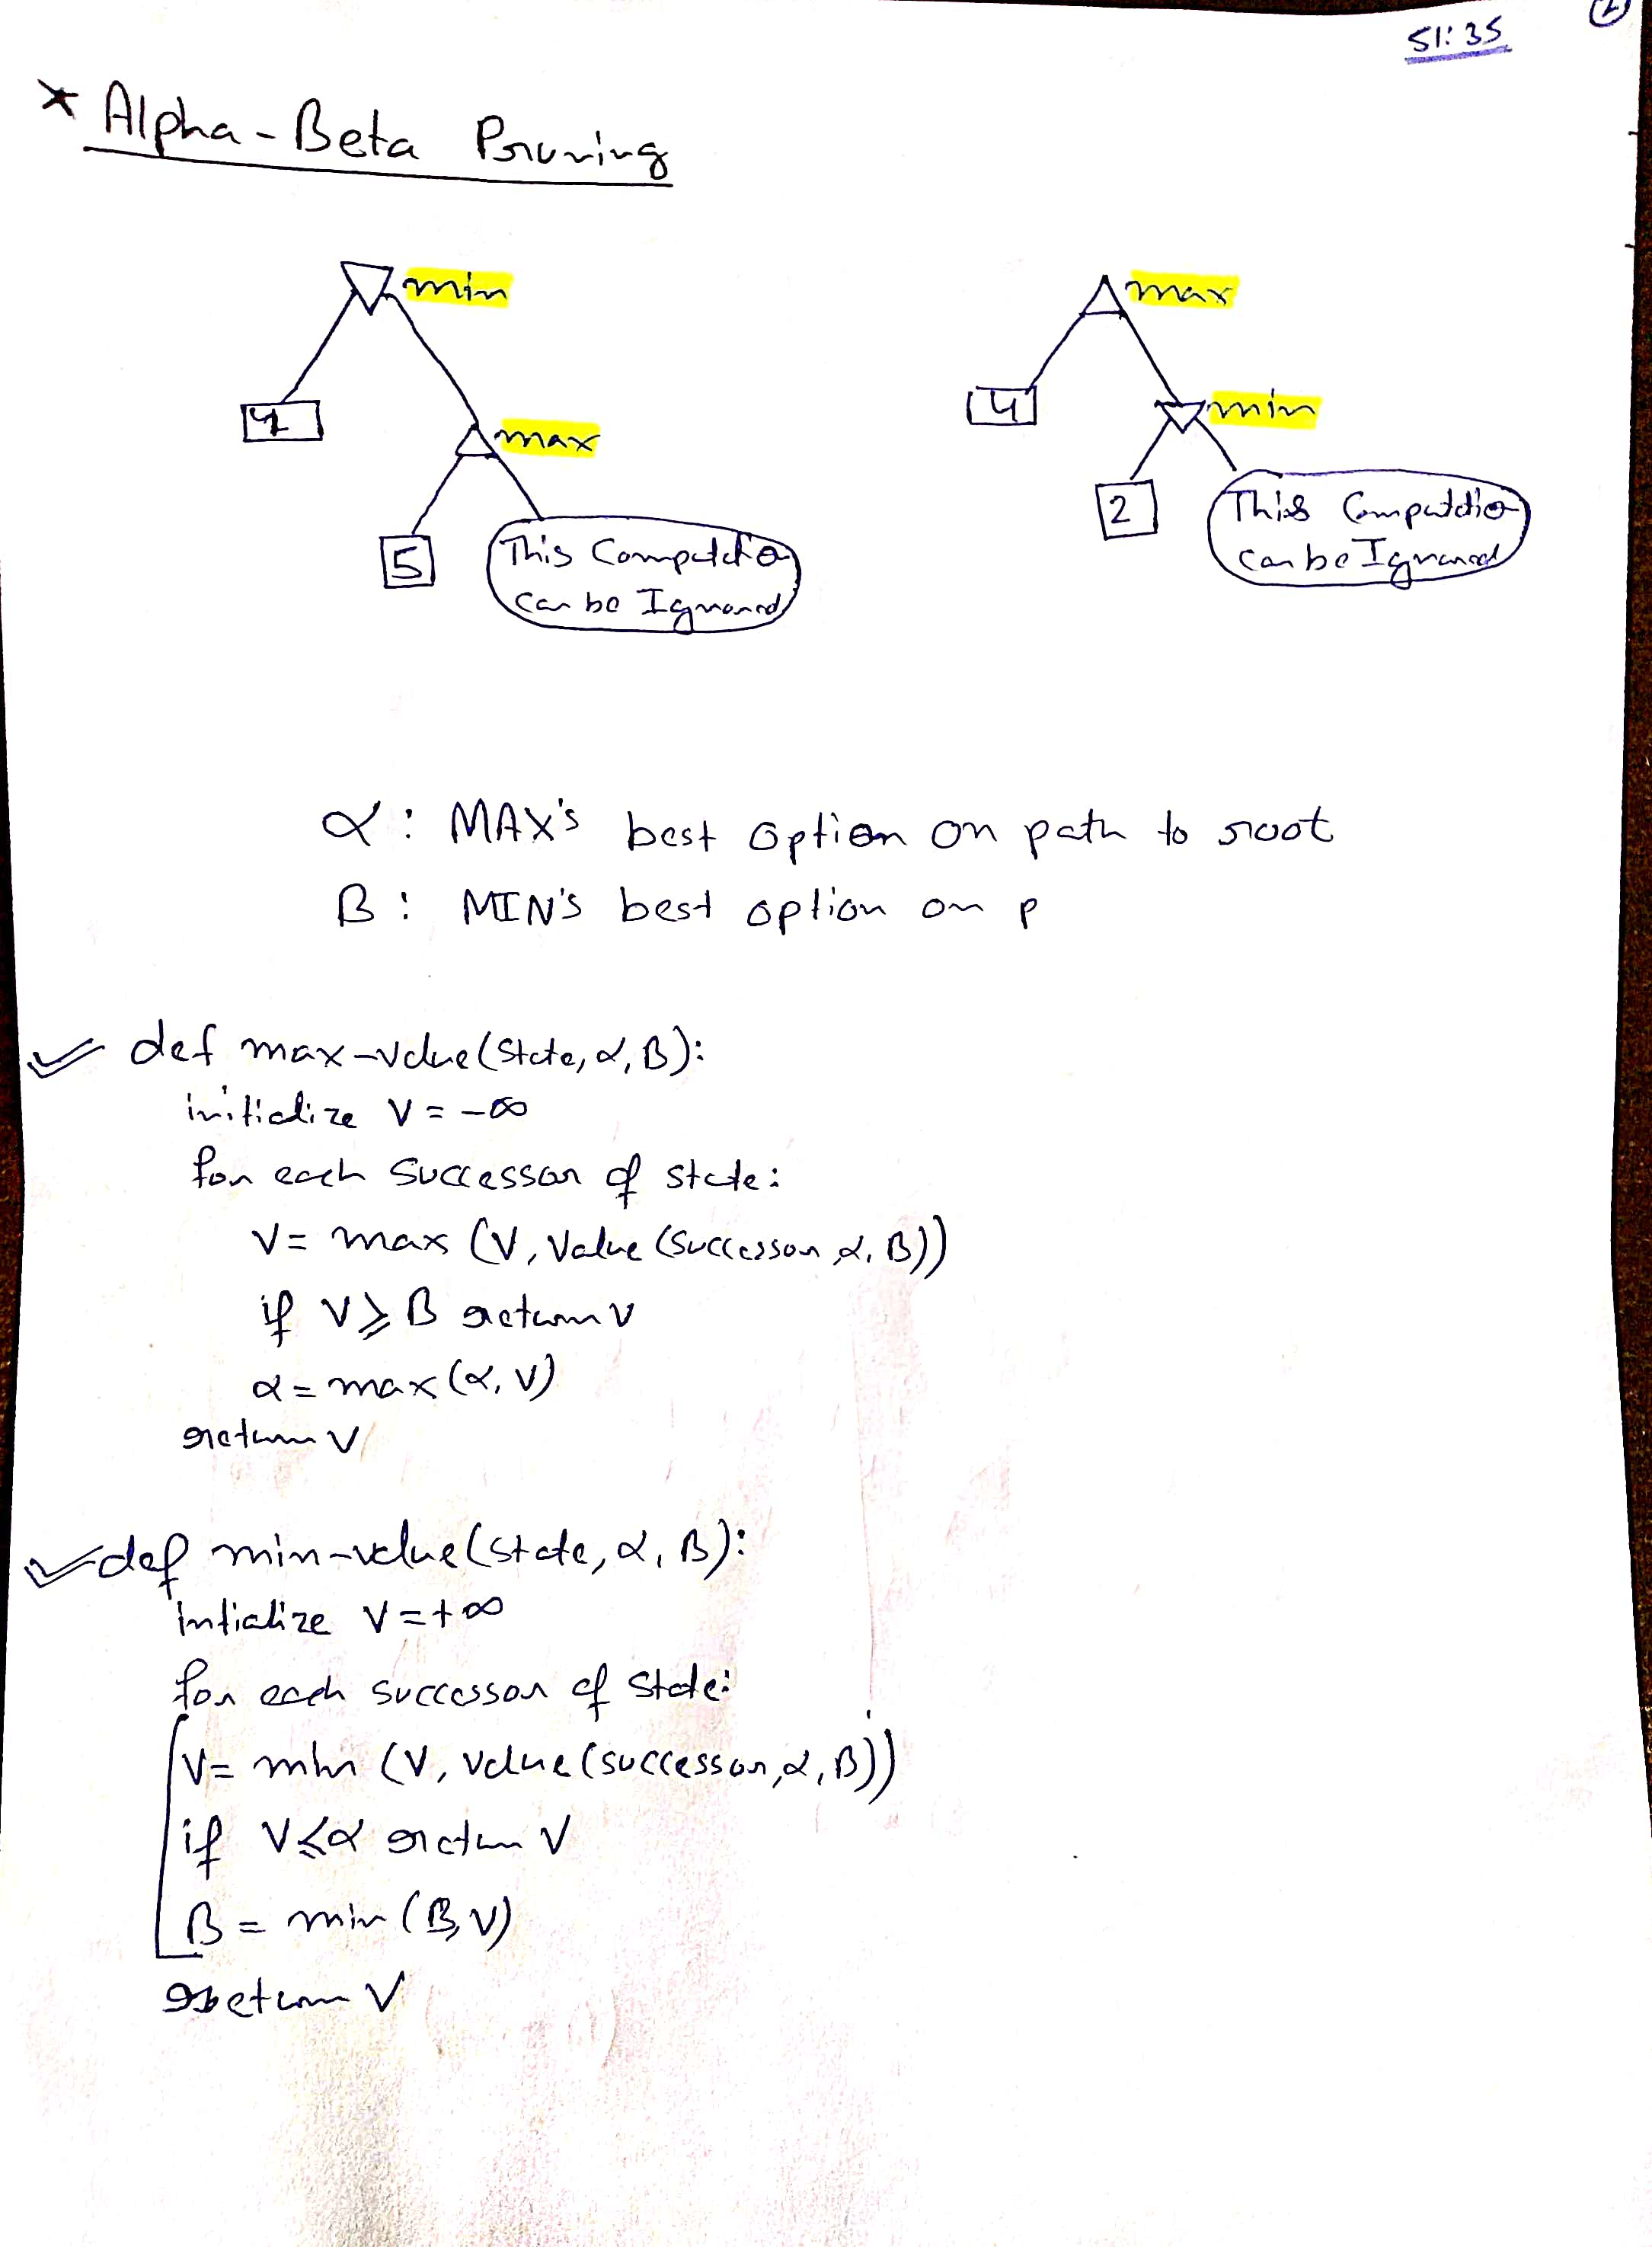 51:35
* Alpha-Beta Pruning
min
max
4
max
min
4
5
2
This Computation
can be Ignored
This Computation
can be Ignored
α: MAX's best option on path to root
β: MIN's best option on p
def max-value(state, α, β):
initialize v = -∞
for each successor of state:
v = max (v, value (successor, α, β))
if v ≥ β return v
α = max (α, v)
return v
def min-value(state, α, β):
Intialize v = +∞
for each successor of state:
v = min (v, value (successor, α, β))
if v ≤ α return v
β = min (β, v)
return v